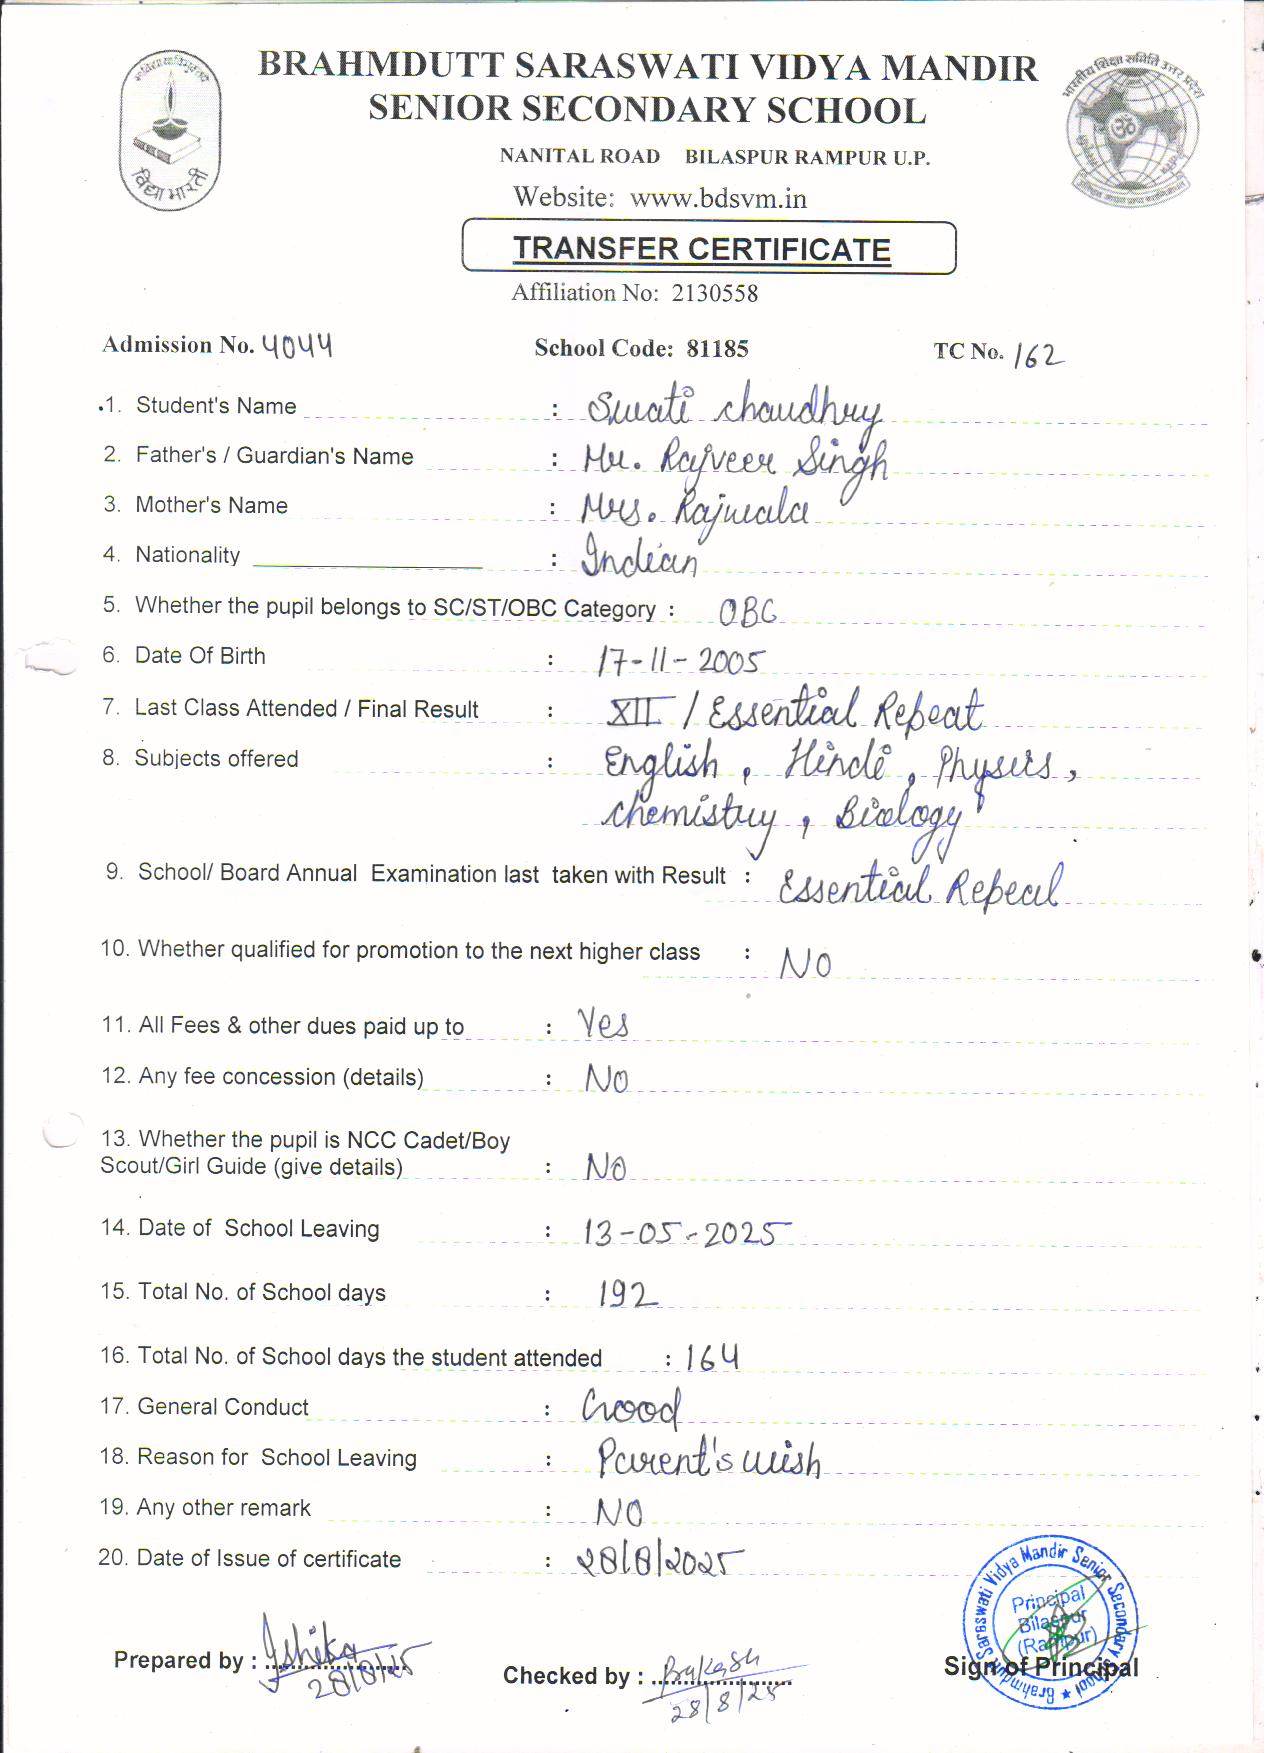 BRAHMDUTT SARASWATI VIDYA MANDIR
SENIOR SECONDARY SCHOOL
NANITAL ROAD BILASPUR RAMPUR U.P.
विद्या भारती
भारतीय शिक्षा समिति उत्तर प्रदेश
Website: www.bdsvm.in
TRANSFER CERTIFICATE
Affiliation No: 2130558
Admission No. 4044 School Code: 81185 TC No. 162
1. Student's Name : Swati chaudhry
2. Father's / Guardian's Name : Mr. Rajveer Singh
3. Mother's Name : Mrs. Rajwala
4. Nationality : Indian
5. Whether the pupil belongs to SC/ST/OBC Category : OBC
6. Date Of Birth : 17-11-2005
7. Last Class Attended / Final Result : XII / Essential Repeat
8. Subjects offered : English, Hindi, Physics,
chemistry, Biology
9. School/ Board Annual Examination last taken with Result : Essential Repeat
10. Whether qualified for promotion to the next higher class : NO
11. All Fees & other dues paid up to : Yes
12. Any fee concession (details) : No
13. Whether the pupil is NCC Cadet/Boy
Scout/Girl Guide (give details) : No
14. Date of School Leaving : 13-05-2025
15. Total No. of School days : 192
16. Total No. of School days the student attended : 164
17. General Conduct : Good
18. Reason for School Leaving : Parent's wish
19. Any other remark : NO
20. Date of Issue of certificate : 28/8/2025
Brahmdutt Saraswati Vidya Mandir Senior Secondary School ★
Principal
Bilaspur
(Rampur)
Prepared by : Ishika
28/8/25
Checked by : Prakash
28/8/25
Sign of Principal